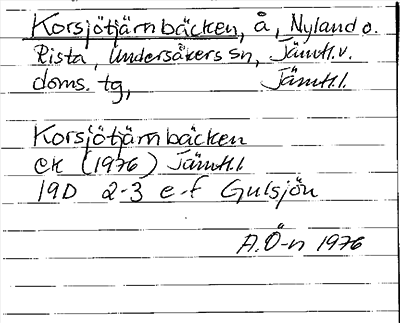 Korsjötjärnbäcken, å, Nyland o.
Rista, Undersåkers sn, Jämtl. v.
doms. tg, Jämtl. l.
Korsjötjärnbäcken
ek (1976) Jämtl. l.
19D 2-3 e-f Gulsjön
A. Ö-n 1976